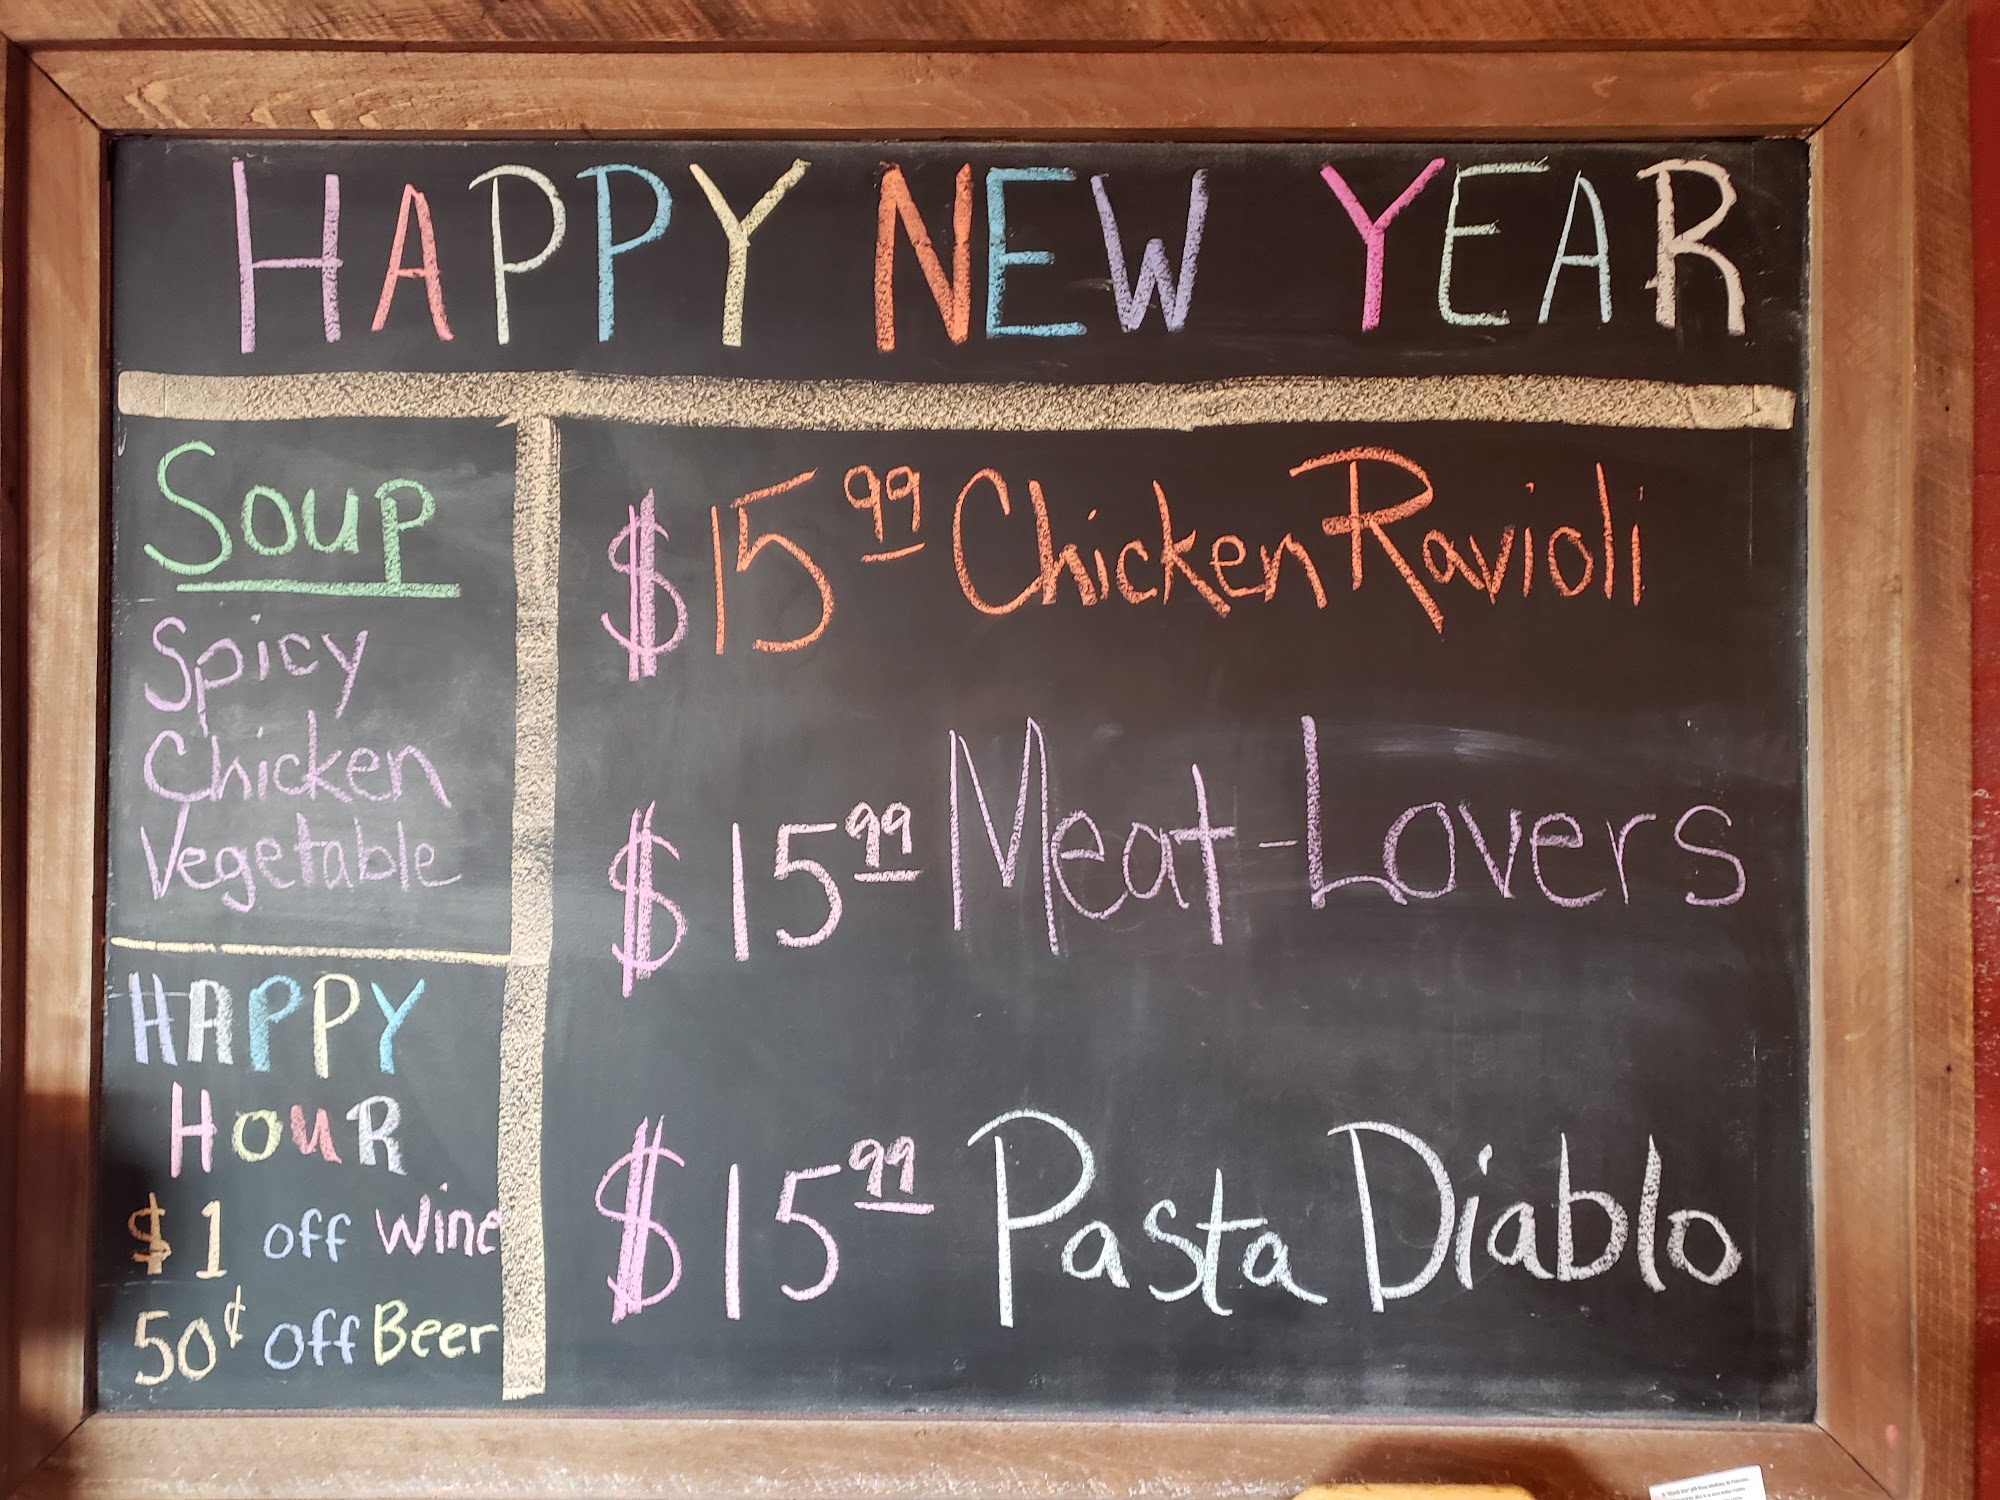 HAPPY NEW YEAR
Soup
Spicy
Chicken
Vegetable
HAPPY
HOUR
$1 off Wine
50¢ off Beer
$15.99 Chicken Ravioli
$15.99 Meat-Lovers
$15.99 Pasta Diablo